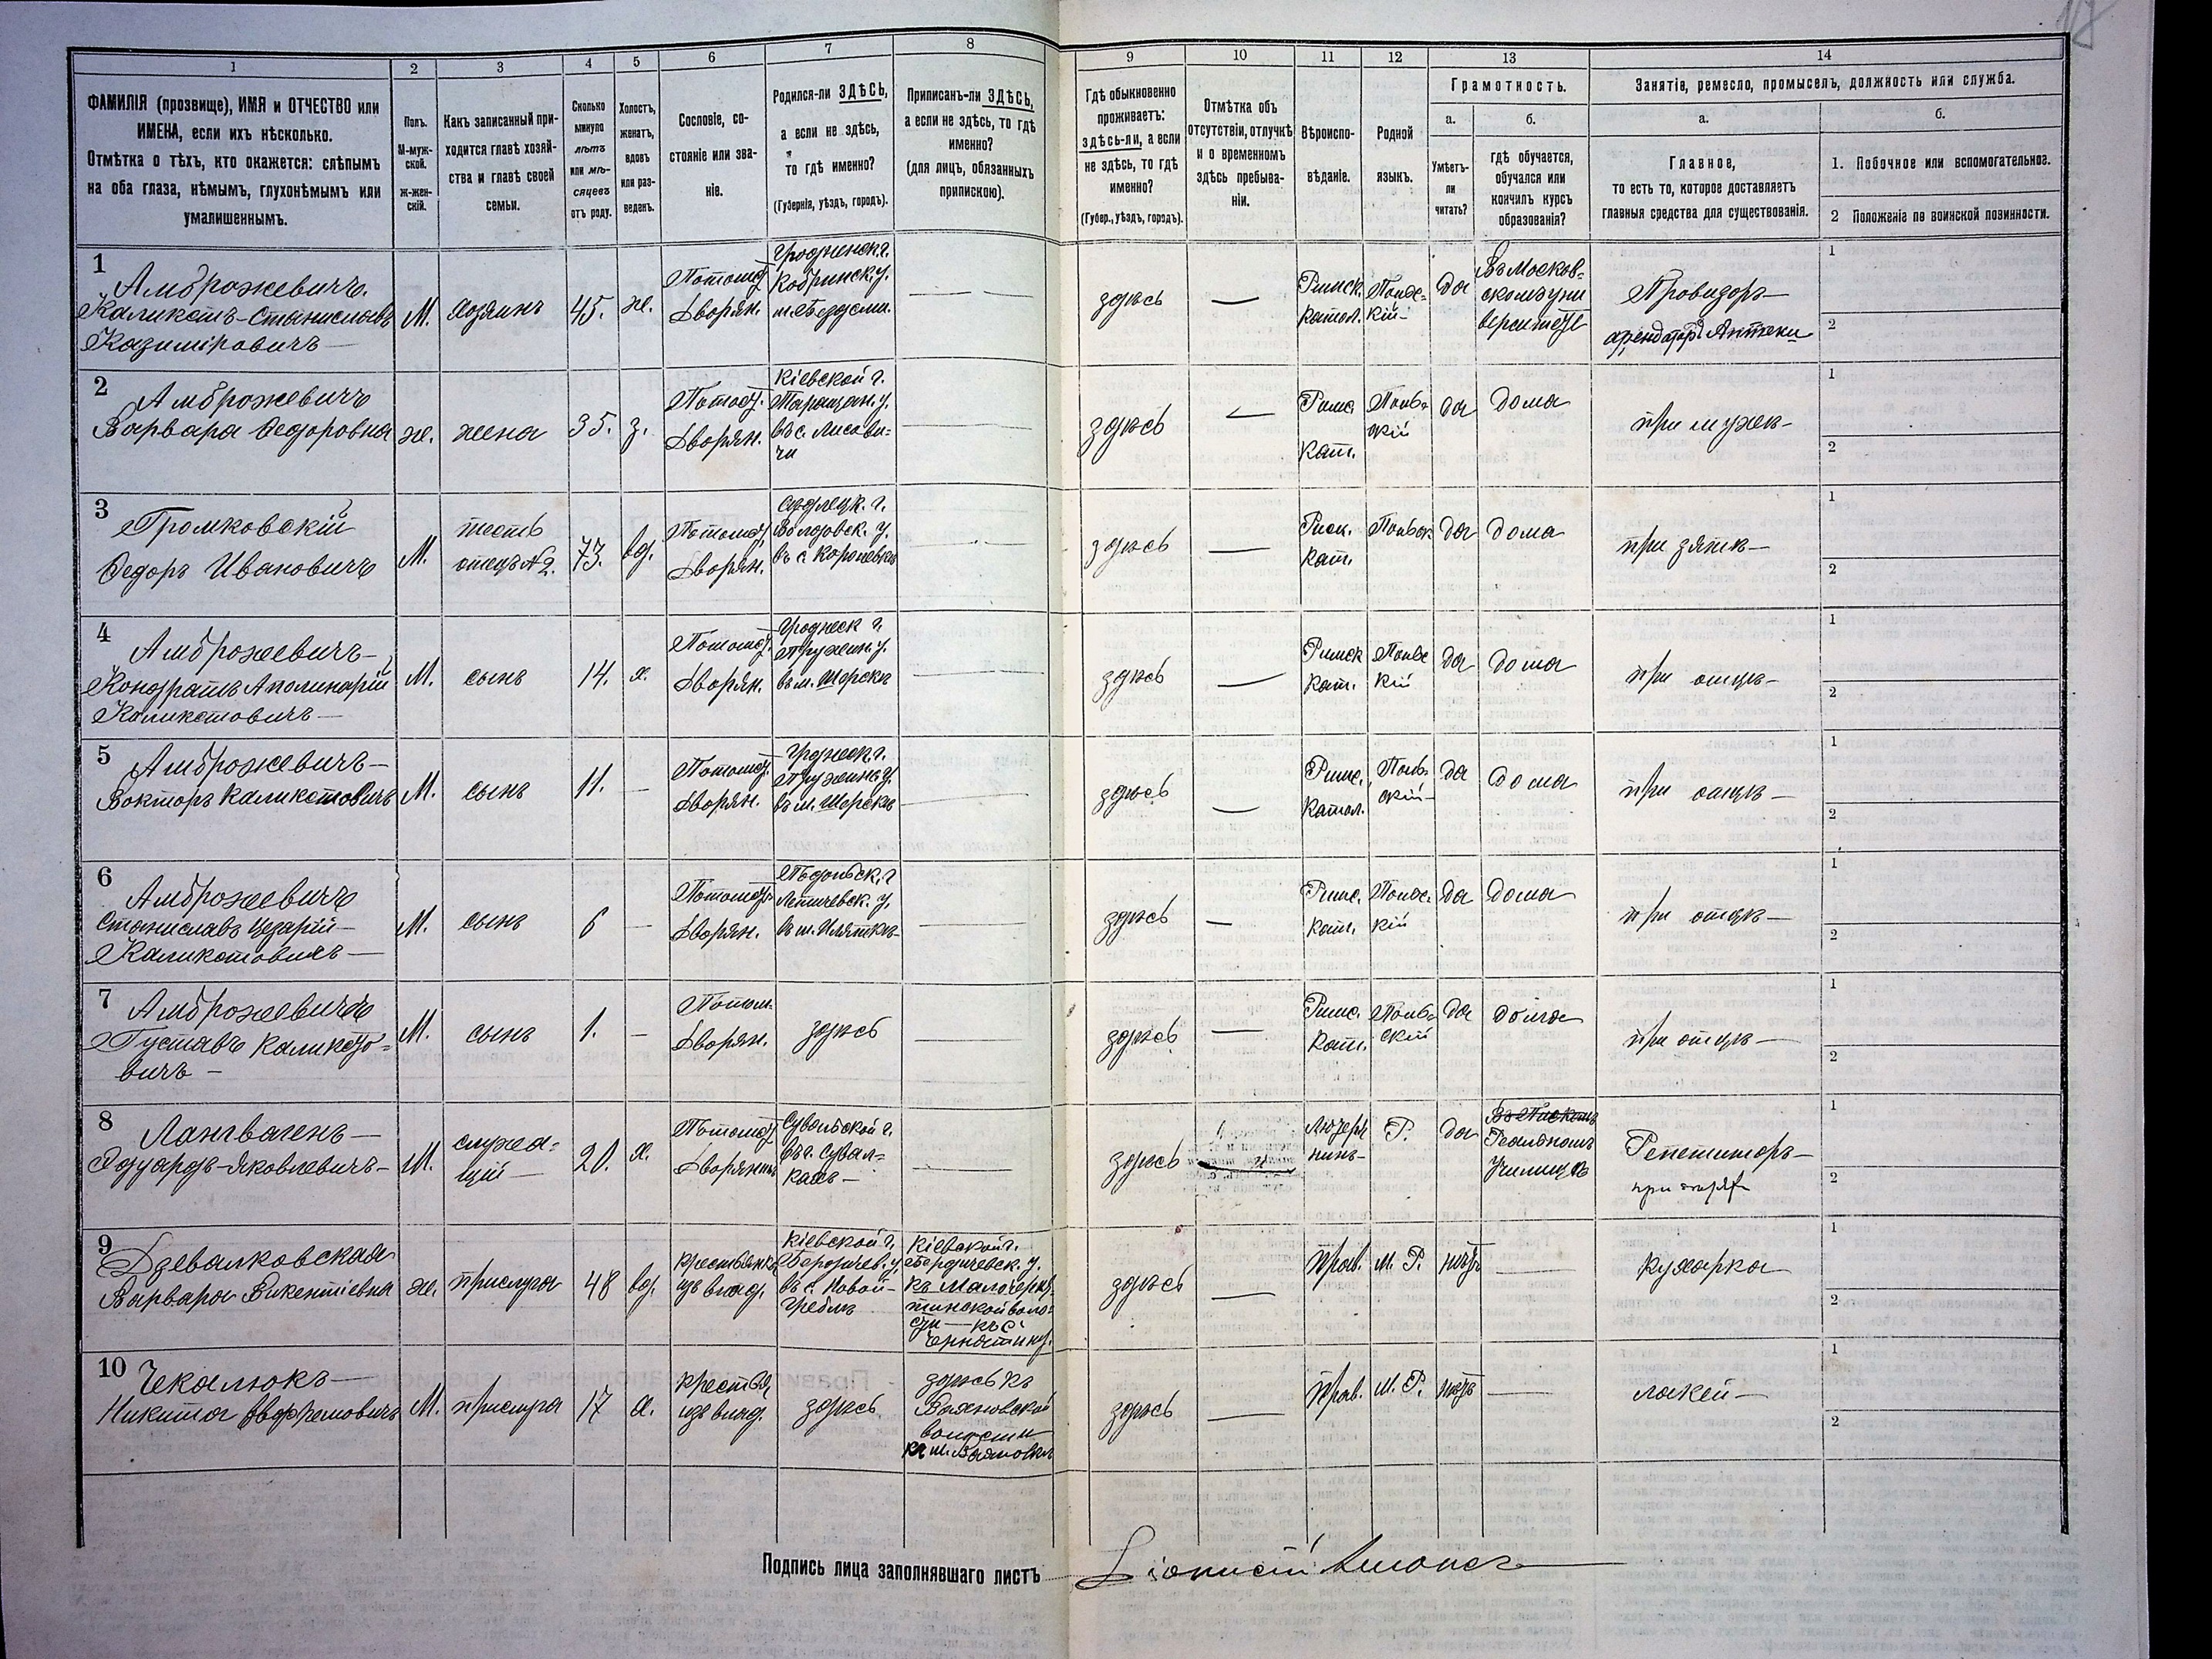 17
1
2
3
4
5
6
7
8
9
10
11
12
13
14
ФАМИЛІЯ (прозвище), ИМЯ и ОТЧЕСТВО или
ИМЕНА, если ихъ нѣсколько.
Отмѣтка о тѣхъ, кто окажется: слѣпымъ
на оба глаза, нѣмымъ, глухонѣмымъ или
умалишеннымъ.
Полъ.
М-муж-
ской.
Ж-жен-
скій.
Какъ записанный при-
ходится главѣ хозяй-
ства и главѣ своей
семьи.
Сколько
минуло
лѣтъ
или мѣ-
сяцевъ
отъ роду.
Холостъ,
женатъ,
вдовъ
или раз-
веденъ.
Сословіе, со-
стояніе или зва-
ніе.
Родился-ли ЗДѢСЬ,
а если не здѣсь,
то гдѣ именно?
(Губернія, уѣздъ, городъ).
Приписанъ-ли ЗДѢСЬ,
а если не здѣсь, то гдѣ
именно?
(для лицъ, обязанныхъ
припискою).
Гдѣ обыкновенно
проживаетъ:
здѣсь-ли, а если
не здѣсь, то гдѣ
именно?
(Губер., уѣздъ, городъ).
Отмѣтка объ
отсутствіи, отлучкѣ
и о временномъ
здѣсь пребыва-
ніи.
Вѣроиспо-
вѣданіе.
Родной
языкъ.
Грамотность.
а.
Умѣетъ-
ли
читать?
б.
гдѣ обучается,
обучался или
кончилъ курсъ
образованія?
Занятіе, ремесло, промыселъ, должность или служба.
а.
Главное,
то есть то, которое доставляетъ
главныя средства для существованія.
б.
1. Побочное или вспомогательное.
2 Положеніе по воинской повинности.
1 Амброжевичъ
Каликстъ-Станиславъ
Казиміровичъ
М.
хозяинъ
45.
ж.
Потомст.
Дворян.
Гродненск. г.
Кобринск. у.
здѣсь
Римск.
катол.
Польс-
кій
да
Въ Москов-
скомъ уни
верситетѣ
Провизоръ
арендаторъ Аптеки
1
2
2 Амброжевичъ
Варвара Федоровна
ж.
жена
35.
з.
Потомст.
Дворян.
Кіевской г.
Таращан. у.
въ с. Лисови-
чи
здѣсь
Римс.
Кат.
Поль-
скій
да
дома
при мужѣ
1
2
3 Громковскій
Федоръ Ивановичъ
М.
тесть
отецъ №2.
73.
вд.
Потомст.
Дворян.
Сѣдлецк. г.
здѣсь
Рим.
кат.
Польск
да
дома
при зятѣ
1
2
4 Амброжевичъ
Кондратъ Аполинарій
Каликстовичъ
М.
сынъ
14.
х.
Потомст.
Дворян.
Гроднеск г.
Пружан. у.
въ м. Шерскѣ
здѣсь
Римск
кат.
Польс
кій
да
дома
при отцѣ
1
2
5 Амброжевичъ
Викторъ Каликстовичъ
М.
сынъ
11.
Потомст.
Дворян.
Гроднеск. г.
Пружан. у.
въ м. Шерскѣ
здѣсь
Римс.
Катол.
Поль-
скій
да
дома
при отцѣ
1
2
6 Амброжевичъ
Станиславъ Цезарій
Каликстовичъ
М.
сынъ
6
Потомст.
Дворян.
Подольск. г.
Летичевск. у.
здѣсь
Римс.
кат.
Польс.
кій
да
дома
при отцѣ
1
2
7 Амброжевичъ
Густавъ Каликсто-
вичъ
М.
сынъ
1.
Потом.
Дворян.
здѣсь
здѣсь
Римс.
кат.
Поль-
скій
да
дома
при отцѣ
1
2
8 Лангвагенъ
Эдуардъ-Яковлевичъ
М.
служа-
щій
20.
х.
Потомст.
Дворянинъ
Сувалской г.
въ г. Сувал-
кахъ
здѣсь
Лютеря
нинъ
Р.
да
Реальномъ
Училищѣ
Репетиторъ
1
2
9 Дзевалковская
Варвара Викентіевна
ж.
прислуга
48
вд.
крестьянка
изъ влад.
Кіевской г.
Бердичев. у.
въ с. Новой
Греблѣ
Кіевской г.
Бердичевск. у.
здѣсь
Прав.
М. Р.
нѣтъ
кухарка
1
2
10 Чекалюкъ
Никита
М.
прислуга
17
х.
крестьян
изъ влад.
здѣсь
здѣсь къ
волости
здѣсь
Прав.
М. Р.
нѣтъ
лакей
1
2
Подпись лица заполнявшаго листъ